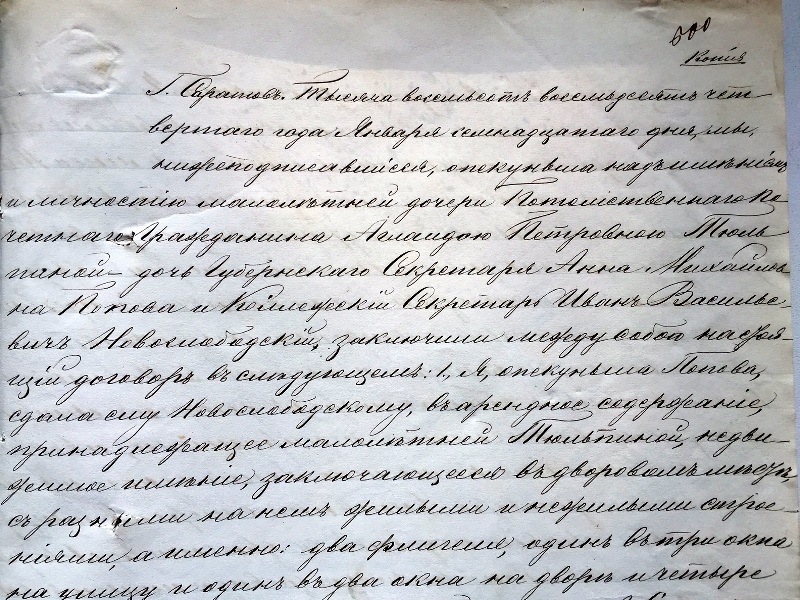 500
Копія
Г. Саратовъ. Тысяча восемьсотъ восемьдесятъ чет-
вертаго года Января семнадцатаго дня, мы,
нижеподписавшіеся, опекунша надъ имѣніемъ
и личностію малолѣтней дочери Потомственнаго По-
четнаго Гражданина Аглаидою Петровною Тюль
паной — дочь Губернскаго Секретаря Анна Михайлов-
на Попова и Коллежскій Секретарь Иванъ Василье-
вичъ Новослободскій, заключили между собою настоя-
щій договоръ въ слѣдующемъ: 1, Я, опекунша Попова,
сдала ему Новослободскому, въ арендное содержаніе,
принадлежащее малолѣтней Тюльпиной, недви-
жимое имѣніе, заключающееся въ дворовомъ мѣстѣ,
съ разными на немъ жилыми и нежилыми строе-
ніями, а именно: два флигеля, одинъ въ три окна
на улицу и одинъ въ два окна на дворъ и четыре